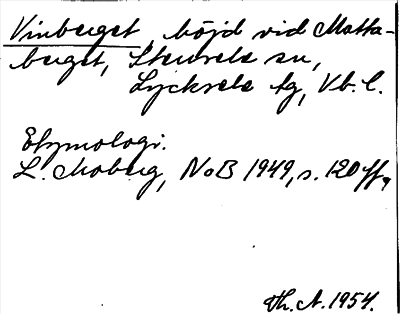 Vinberget, höjd vid Matta-
berget, Stensele sn,
Lycksele tg, Vb. l.
Etymologi.
L. Moberg, NoB 1949, s. 120 ff.
Th. A. 1954.